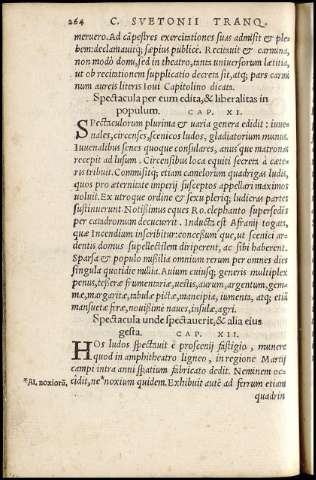 264 C. SVETONII TRANQ.
meruero. Ad cāpestres exercitationes suas admisit & ple
bem: declamauitq; sæpius publicè. Recitauit & carmina,
non modò domi, sed in theatro, tanta uniuersorum lætitia,
ut ob recitationem supplicatio decreta sit, atq; pars carmi
num aureis literis Ioui Capitolino dicata.
Spectacula per eum edita, & liberalitas in
populum. CAP. XI.
SPectaculorum plurima & uaria genera edidit: iuue-
nales, circenses, scenicos ludos, gladiatorium munus.
Iuuenalibus senes quoque consulares, anus que matronas
recepit ad lusum. Circensibus loca equiti secreta à cæte
ris tribuit. Commisitq; etiam camelorum quadrigas. Ludis,
quos pro æternitate imperij susceptos appellari maximos
uoluit. Ex utroque ordine & sexu pleriq; ludicras partes
sustinuerunt. Notissimus eques Ro. elephanto supersedēs
per catadromum decucurrit. Inducta est Afranij togata,
quæ Incendium inscribitur: concessum que, ut scenici ar-
dentis domus supellectilem diriperent, ac sibi haberent.
Sparsa & populo missilia omnium rerum per omnes dies
singula quotidie millia. Auium cuiusq; generis multiplex
penus, tesseræ frumentariæ, uestis, aurum, argentum, gem-
mæ, margaritæ, tabulæ pictæ, mancipia, iumenta, atq; etiā
mansuetæ feræ, nouissimè naues, insulæ, agri.
Spectacula unde spectauerit, & alia eius
gesta. CAP. XII.
HOs ludos spectauit è proscenij fastigio, munere
quod in amphitheatro ligneo, in regione Martij
campi intra anni spatium fabricato dedit. Neminem oc-
*al. noxiorū, cidit, ne *noxium quidem. Exhibuit autē ad ferrum etiam
quadrin